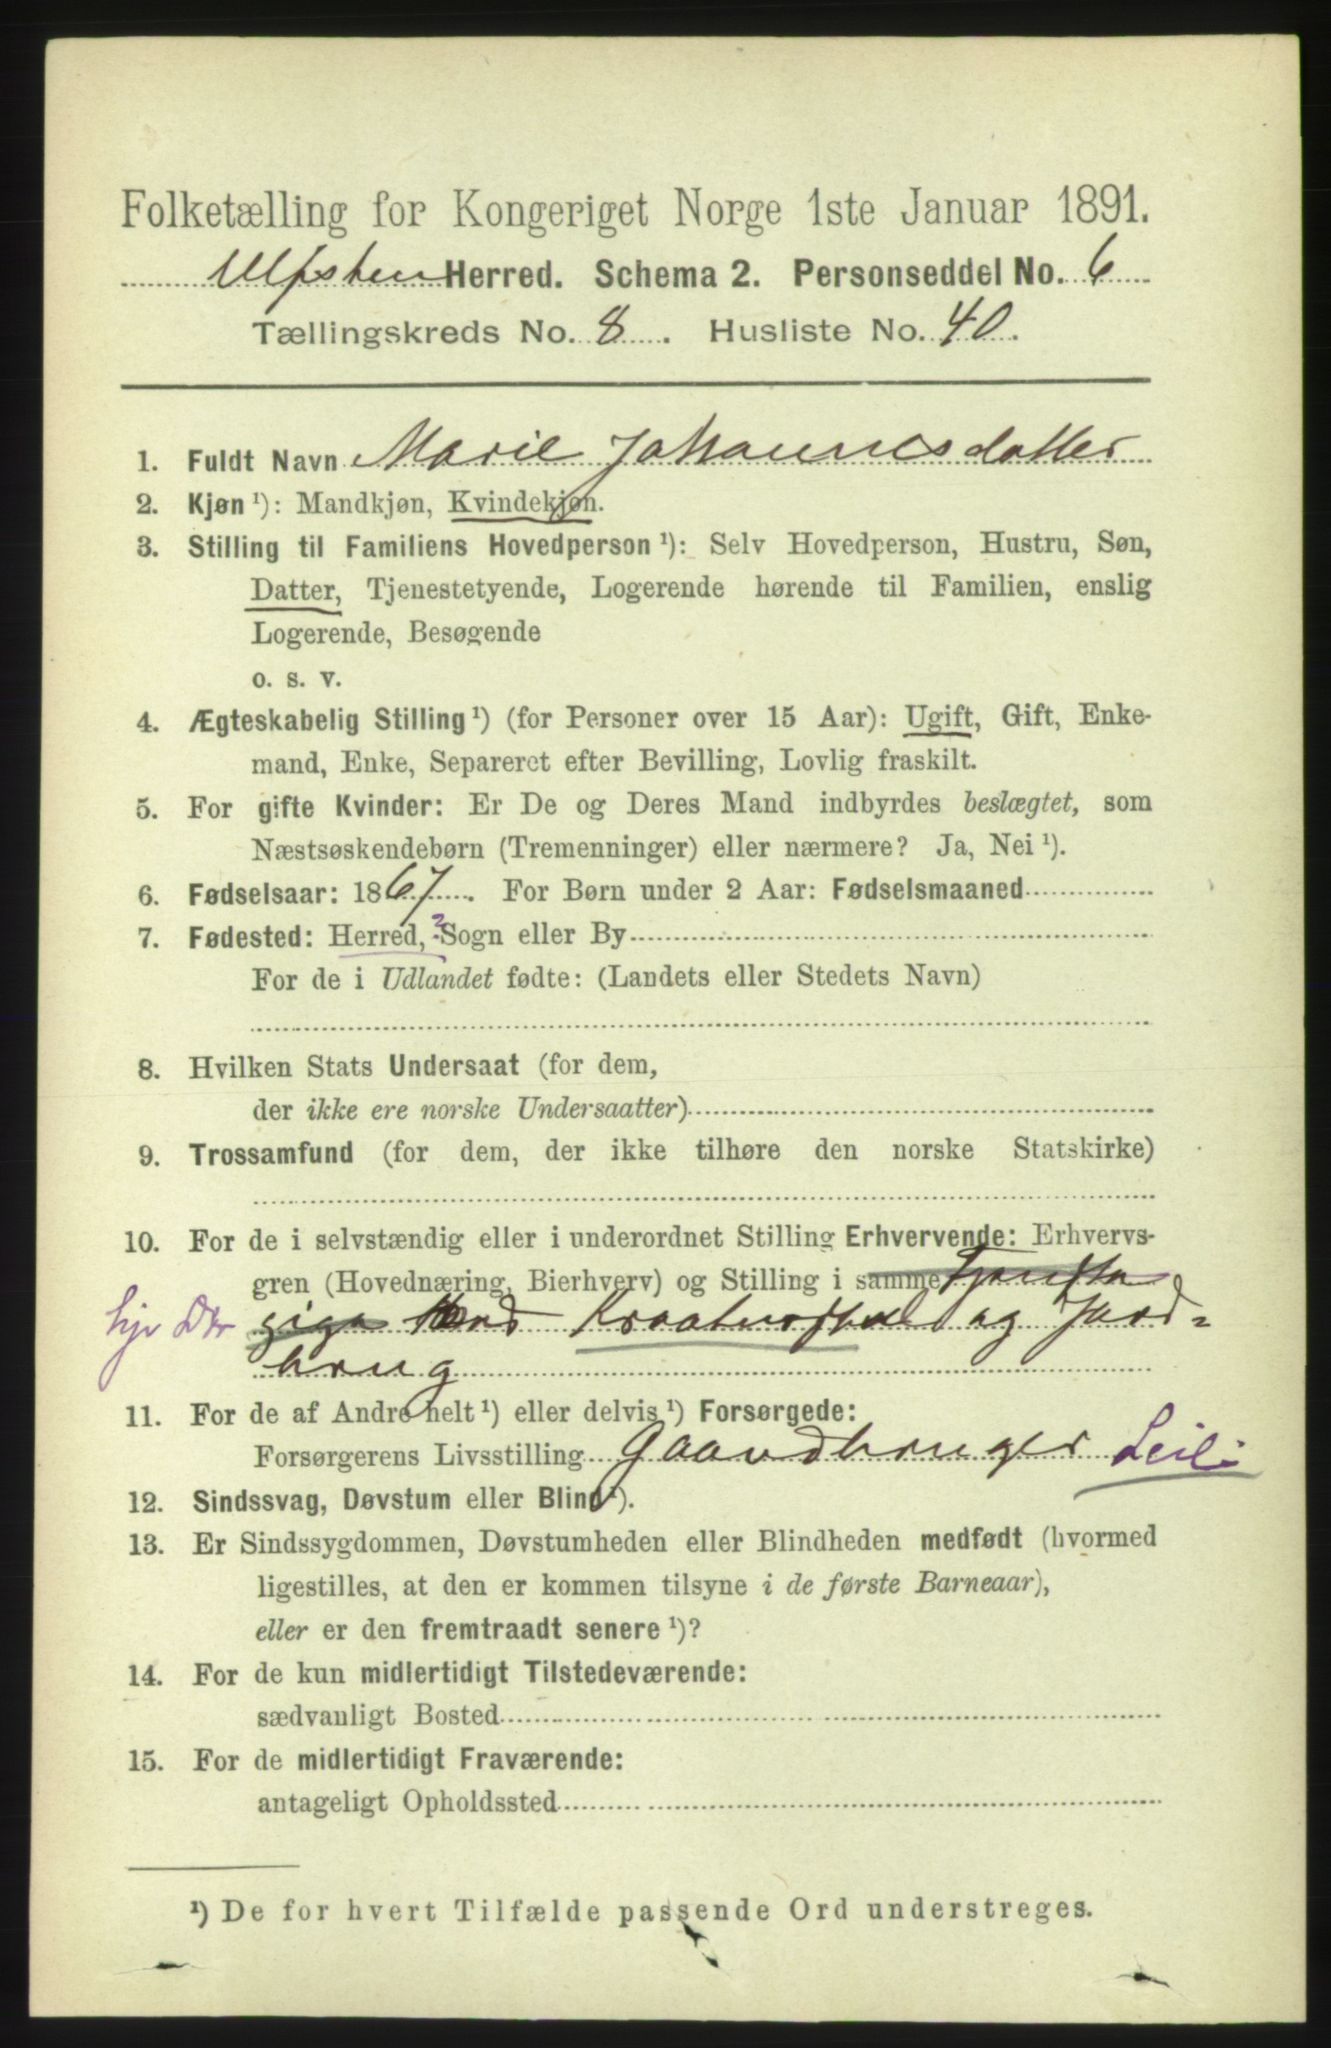 Folketælling for Kongeriget Norge 1ste Januar 1891.
Ulfsten Herred. Schema 2. Personseddel No. 6
Tællingskreds No. 8. Husliste No. 40.
1. Fuldt Navn Marie Johannesdatter
2. Kjøn ¹): Mandkjøn, Kvindekjøn.
3. Stilling til Familiens Hovedperson ¹): Selv Hovedperson, Hustru, Søn,
Datter, Tjenestetyende, Logerende hørende til Familien, enslig
Logerende, Besøgende
o. s. v.
4. Ægteskabelig Stilling ¹) (for Personer over 15 Aar): Ugift, Gift, Enke-
mand, Enke, Separeret efter Bevilling, Lovlig fraskilt.
5. For gifte Kvinder: Er De og Deres Mand indbyrdes beslægtet, som
Næstsøskendebørn (Tremenninger) eller nærmere? Ja, Nei ¹).
6. Fødselsaar: 1867. For Børn under 2 Aar: Fødselsmaaned
7. Fødested: Herred, ? Sogn eller By
For de i Udlandet fødte: (Landets eller Stedets Navn)
8. Hvilken Stats Undersaat (for dem,
der ikke ere norske Undersaatter)
9. Trossamfund (for dem, der ikke tilhøre den norske Statskirke)
10. For de i selvstændig eller i underordnet Stilling Erhvervende: Erhvervs-
gren (Hovednæring, Bierhverv) og Stilling i samme
hje Dtr giga med Kreaturstel og Jord=
brug
11. For de af Andre helt ¹) eller delvis ¹) Forsørgede:
Forsørgerens Livsstilling Gaardbruger Leil:
12. Sindssvag, Døvstum eller Blind ¹).
13. Er Sindssygdommen, Døvstumheden eller Blindheden medfødt (hvormed
ligestilles, at den er kommen tilsyne i de første Barneaar),
eller er den fremtraadt senere ¹)?
14. For de kun midlertidigt Tilstedeværende:
sædvanligt Bosted
15. For de midlertidigt Fraværende:
antageligt Opholdssted
¹) De for hvert Tilfælde passende Ord understreges.